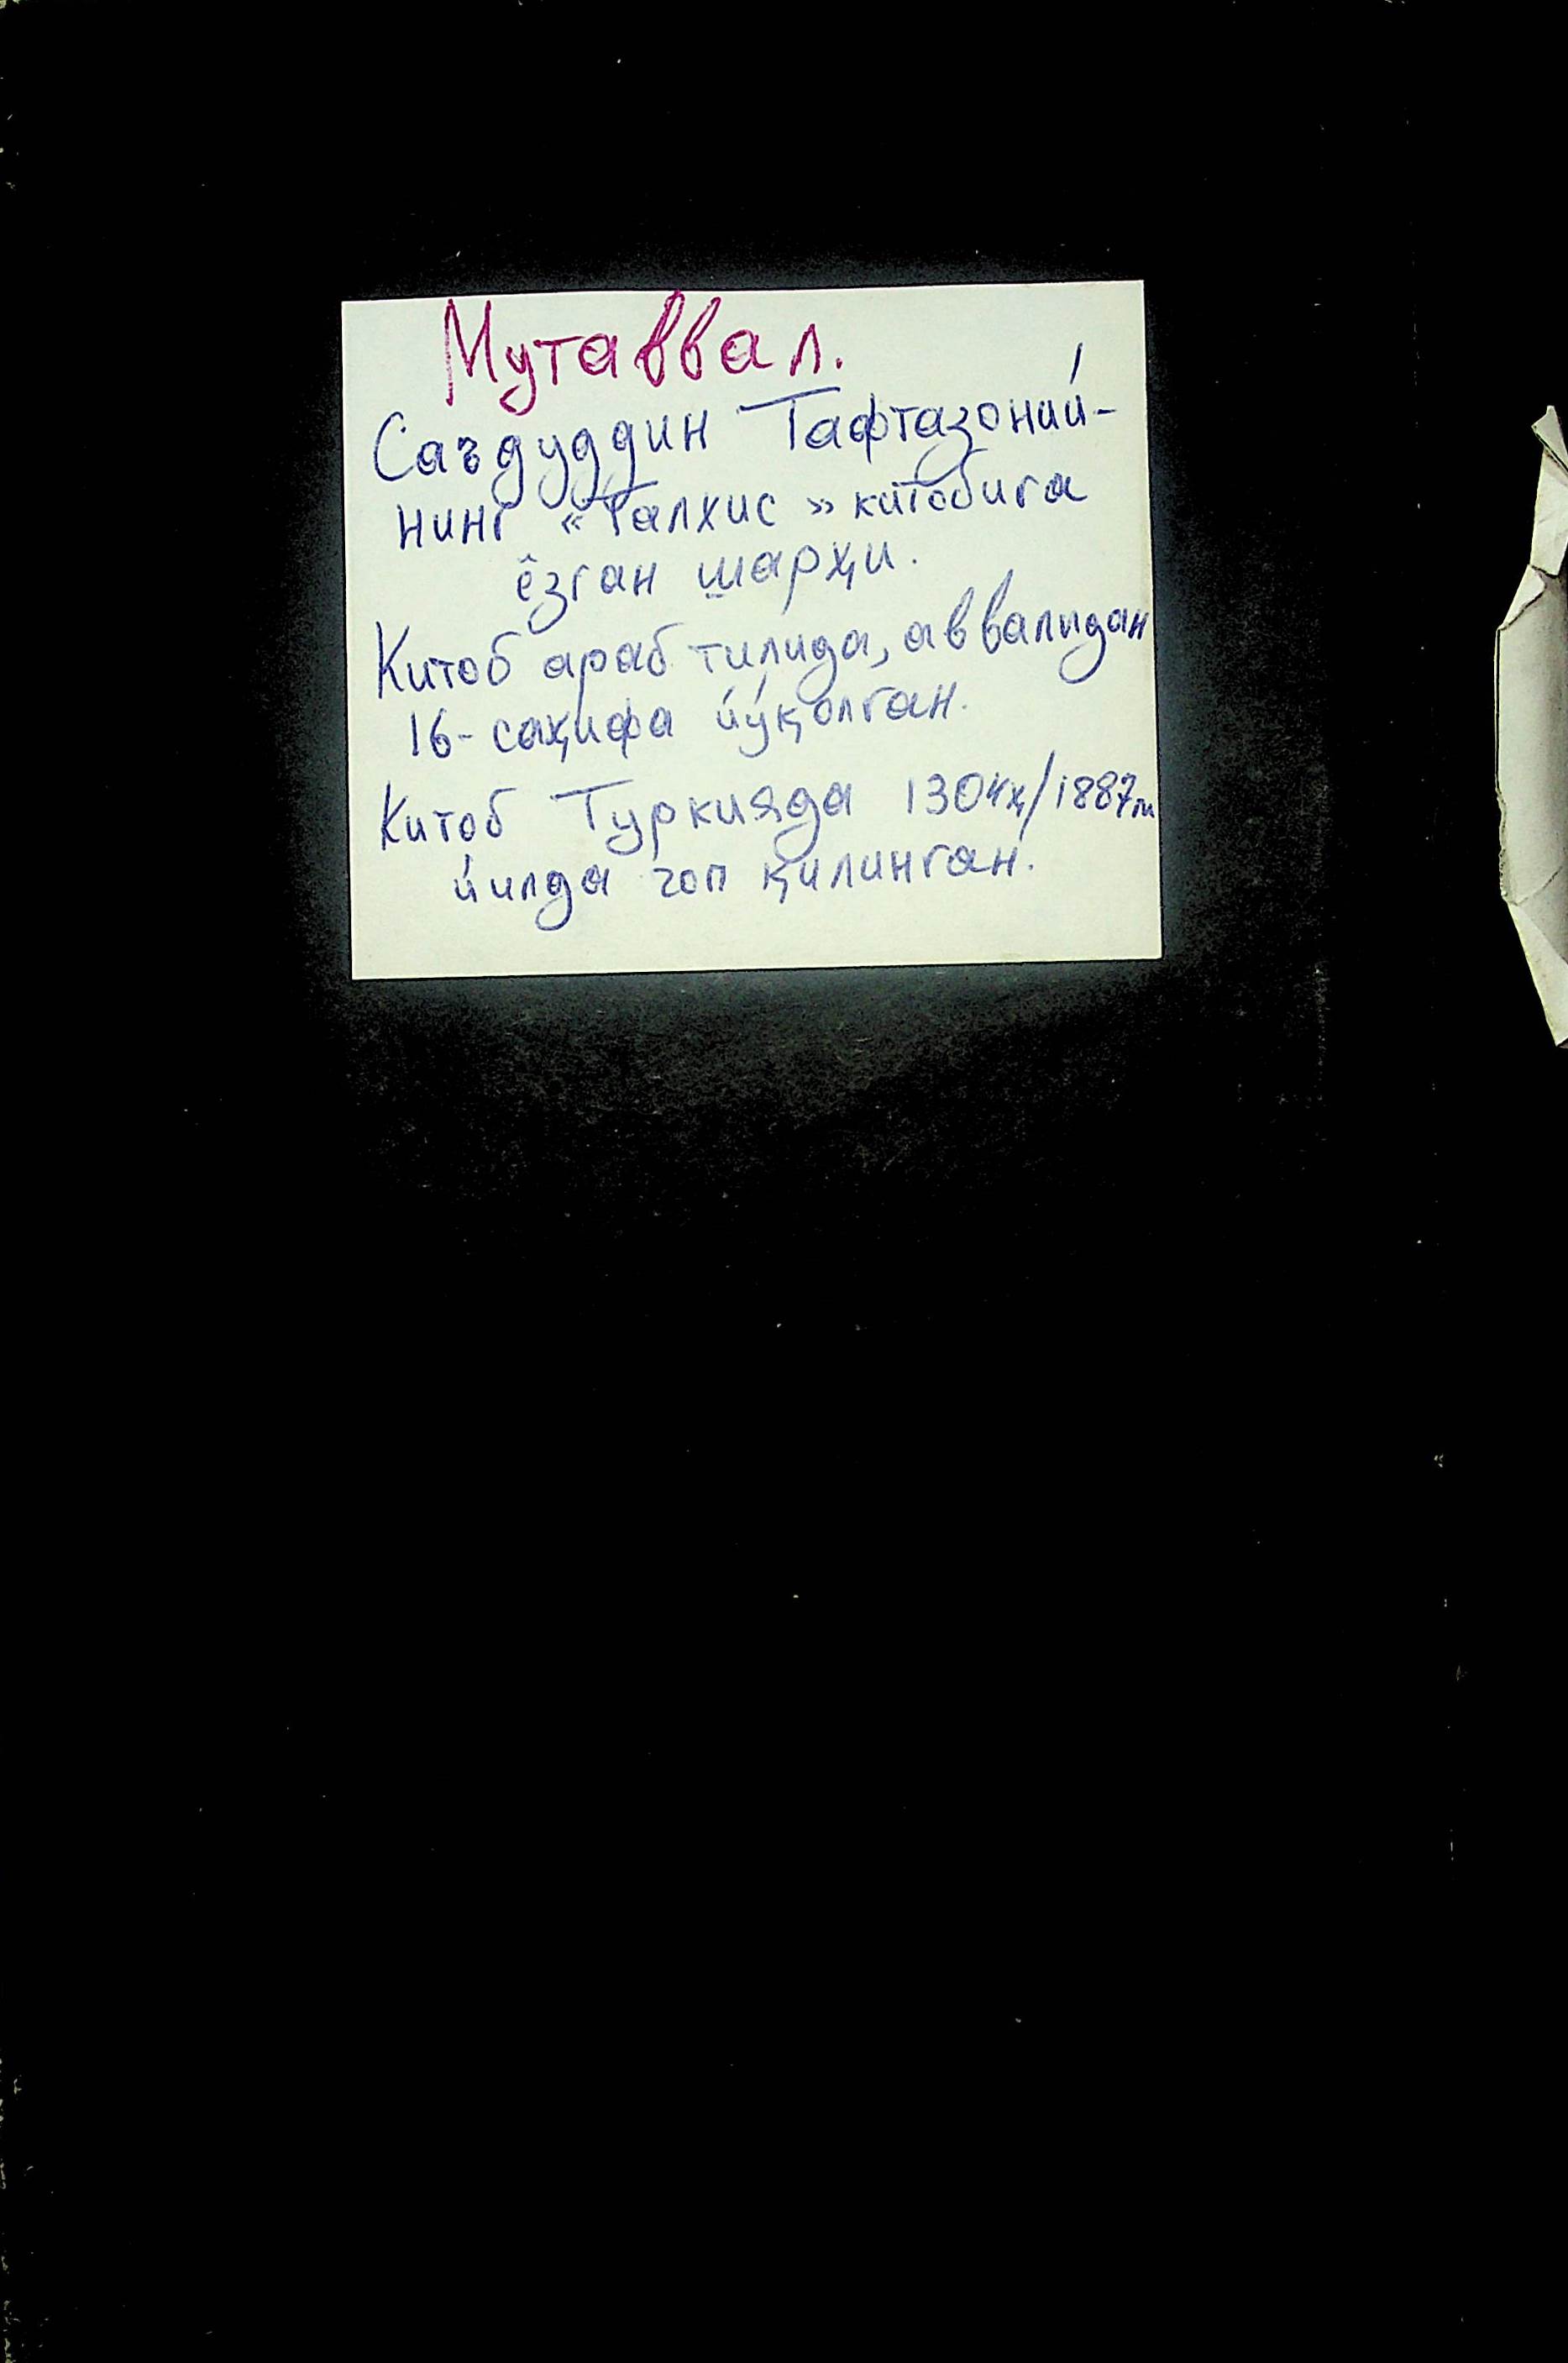 Мутаввал.
Саъдуддин Тафтазоний-
нинг «Талхис» китобига
ёзган шарҳи.
Китоб араб тилида, аввалидан
16-саҳифа йўқолган.
Китоб Туркияда 1304ҳ/1887м
йилда чоп қилинган.